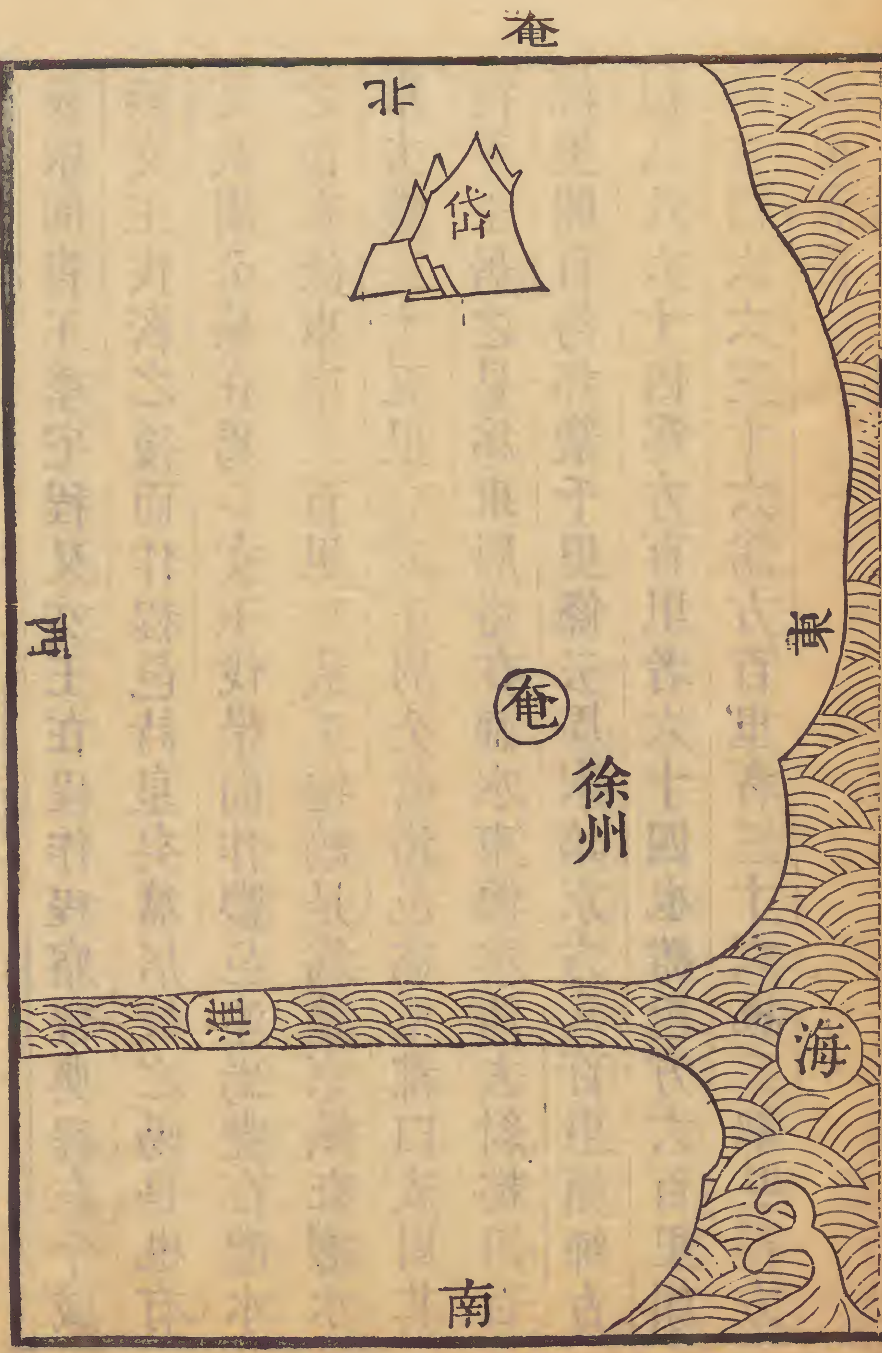 奄
北
岱
西
東
奄
徐州
淮
海
南